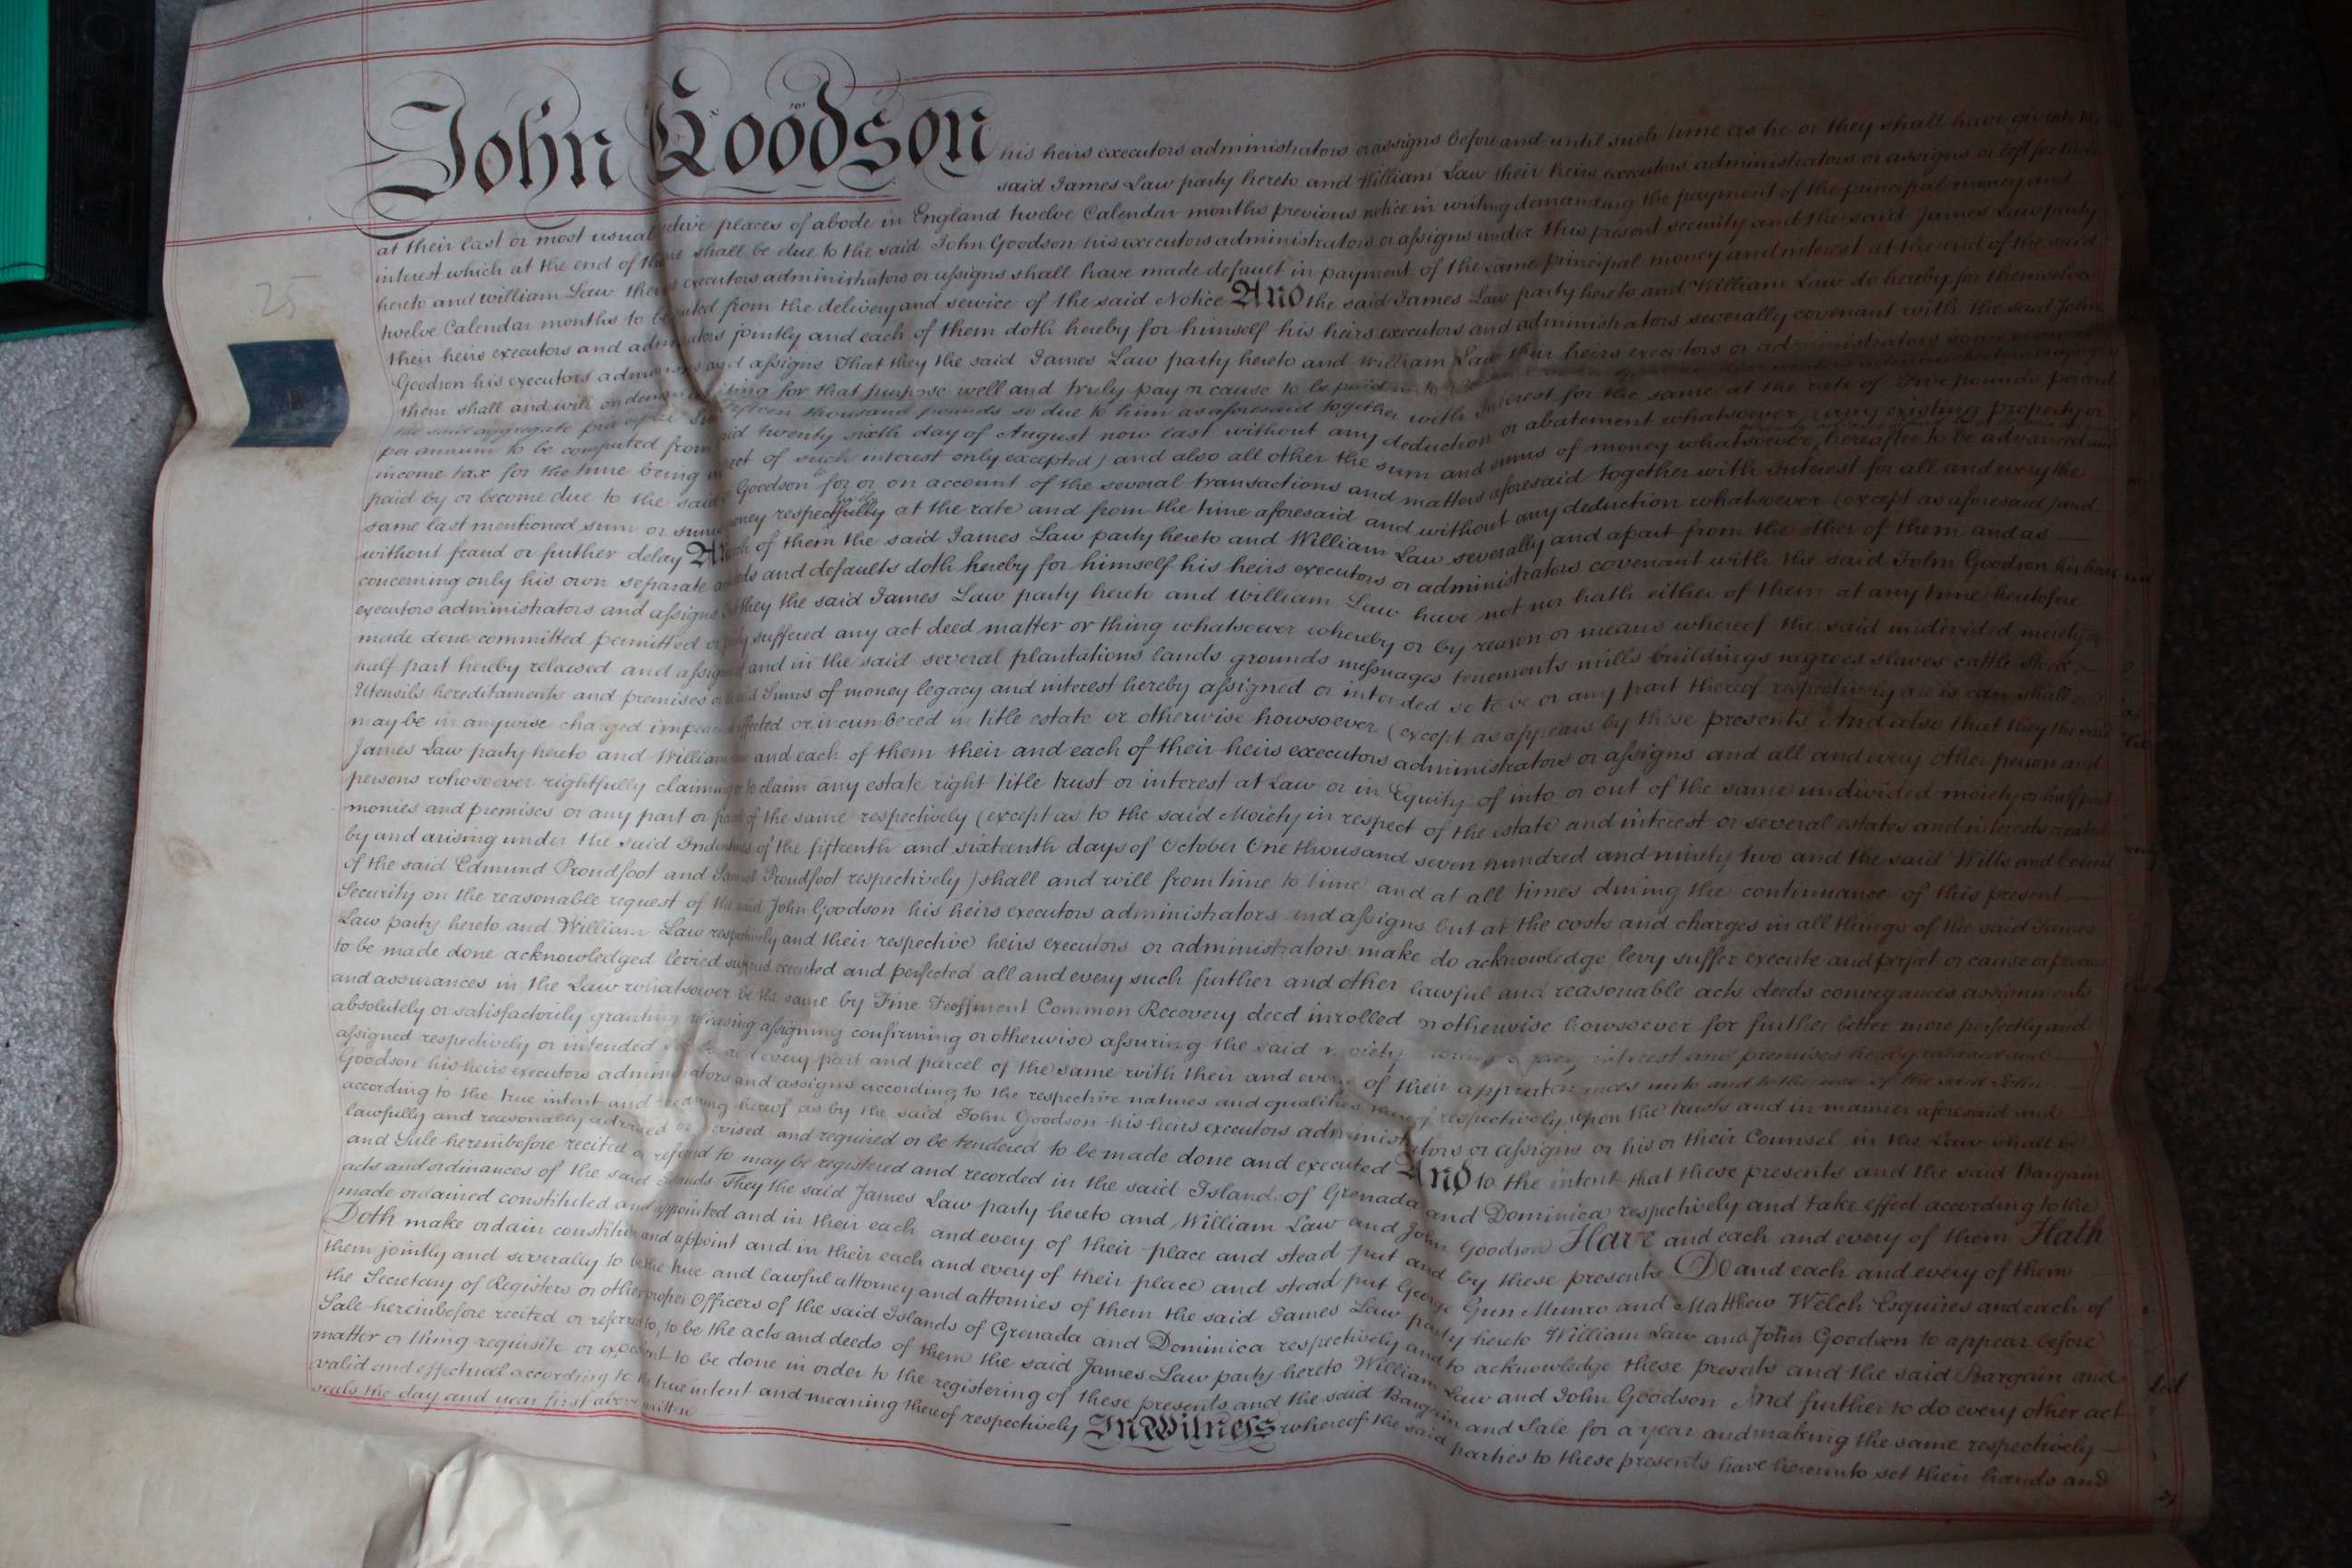 25
John Goodson his heirs executors administrators or assigns before and until such time as he or they shall have given to the
said James Law party hereto and William Law their heirs executors administrators or assigns or left for them
at their last or most usual places of abode in England twelve Calendar months previous notice in writing demanding the payment of the principal money and
interest which at the end of shall be due to the said John Goodson his executors administrators or assigns under this present security and the said James Law party
hereto and William Law their executors administrators or assigns shall have made default in payment of the same principal money and interest at the end of the said
twelve Calendar months to be from the delivery and service of the said Notice And the said James Law party hereto and William Law do hereby for themselves
their heirs executors and jointly and each of them doth hereby for himself his heirs executors and administrators severally covenant with the said John
Goodson his executors and assigns That they the said James Law party hereto and William Law their heirs executors or administrators some
them shall and will on for that purpose well and truly pay or cause to be paid
the said aggregate principal Fifteen thousand pounds so due to him as aforesaid together with Interest for the same at the rate of Five pounds percent
per annum to be computed from twenty sixth day of August now last without any deduction or abatement whatsoever (any existing property or
income tax for the time being of such interest only excepted) and also all other the sum and sums of money whatsoever hereafter to be advanced
paid by or become due to the said Goodson for or on account of the several transactions and matters aforesaid together with Interest for all and every the
same last mentioned sum or sums money respectfully at the rate and from the time aforesaid and without any deduction whatsoever (except as aforesaid) and
without fraud or further delay And of them the said James Law party hereto and William Law severally and apart from the other of them and as
concerning only his own separate and defaults doth hereby for himself his heirs executors or administrators covenant with the said John Goodson his heirs
executors administrators and assigns they the said James Law party hereto and William Law have not nor hath either of them at any time heretofore
made done committed permitted or suffered any act deed matter or thing whatsoever whereby or by reason or means whereof the said undivided moiety or
half part hereby released and assigned and in the said several plantations lands grounds messuages tenements mills buildings negroes slaves cattle Stock
Utensils hereditaments and premises or Sums of money legacy and interest hereby assigned or intended so to be or any part thereof respectively are is can shall or
may be in anywise charged affected or incumbered in title estate or otherwise howsoever (except as appears by these presents) And also that they the said
James Law party hereto and William and each of them their and each of their heirs executors administrators or assigns and all and every other person and
persons whosoever rightfully claiming or to claim any estate right title trust or interest at Law or in Equity of into or out of the same undivided moiety or half part
monies and premises or any part or of the same respectively (except as to the said Moiety in respect of the estate and interest or several estates and interests created
by and arising under the said of the fifteenth and sixteenth days of October One thousand seven hundred and ninety two and the said Wills and Codicil
of the said Edmund Proudfoot and Proudfoot respectively) shall and will from time to time and at all times during the continuance of this present
Security on the reasonable request of the said John Goodson his heirs executors administrators and assigns but at the costs and charges in all things of the said James
Law party hereto and William Law respectively and their respective heirs executors or administrators make do acknowledge levy suffer execute and perfect or cause or procure
to be made done acknowledged levied suffered executed and perfected all and every such further and other lawful and reasonable acts deeds conveyances assignments
and assurances in the Law whatsoever be the same by Fine Feoffment Common Recovery deed inrolled or otherwise howsoever for further better more perfectly and
absolutely or satisfactorily granting releasing assigning confirming or otherwise assuring the said moiety interest and premises hereby released and
assigned respectively or intended so to be and every part and parcel of the same with their and every of their appurtenances unto and to the use of the said John
Goodson his heirs executors administrators and assigns according to the respective natures and qualities thereof respectively upon the trusts and in manner aforesaid and
according to the true intent and meaning hereof as by the said John Goodson his heirs executors administrators or assigns or his or their Counsel in the Law shall be
lawfully and reasonably advised or devised and required or be tendered to be made done and executed And to the intent that these presents and the said Bargain
and Sale hereinbefore recited or referred to may be registered and recorded in the said Islands of Grenada and Dominica respectively and take effect according to the
acts and ordinances of the said Islands They the said James Law party hereto and William Law and John Goodson Have and each and every of them Hath
made ordained constituted and appointed and in their each and every of their place and stead put and by these presents Do and each and every of them
Doth make ordain constitute and appoint and in their each and every of their place and stead put George Gun Munro and Matthew Welch Esquires and each of
them jointly and severally to be the true and lawful attorney and attornies of them the said James Law party hereto William Law and John Goodson to appear before
the Secretary of Registers or other proper Officers of the said Islands of Grenada and Dominica respectively and to acknowledge these presents and the said Bargain and
Sale hereinbefore recited or referred to, to be the acts and deeds of them the said James Law party hereto William Law and John Goodson And further to do every other act
matter or thing requisite or expedient to be done in order to the registering of these presents and the said Bargain and Sale for a year and making the same respectively
valid and effectual according to the true intent and meaning thereof respectively In Witness whereof the said parties to these presents have hereunto set their hands and
seals the day and year first above written